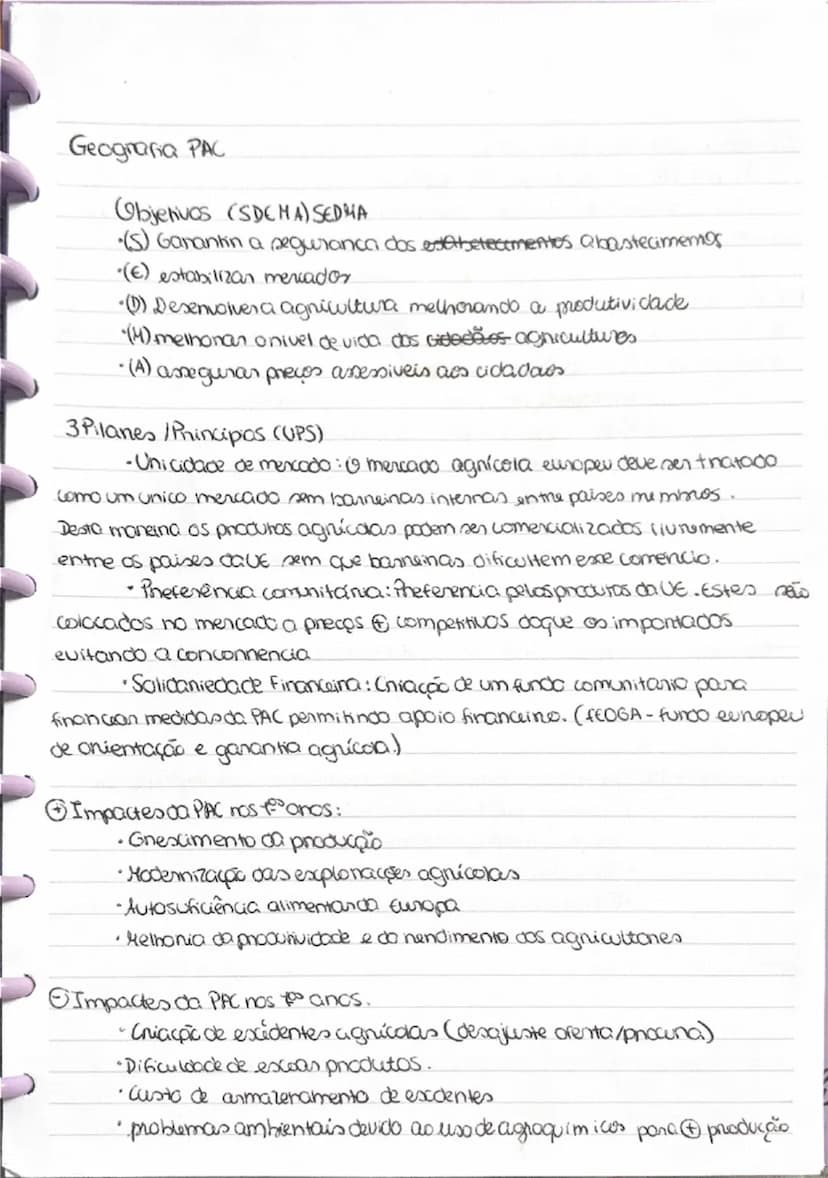 Geografia PAC
Objetivos (SDEMA) SEDMA
·(S) Garantir a seguranca dos estabelecimentos abastecimentos
·(E) estabilizar mercados
·(D) Desenvolver a agricultura melhorando a produtividade
·(M) melhorar o nivel de vida dos cidadãos agricultures
·(A) assegurar preços acessiveis aos cidadaos
3 Pilares / Principos (UPS)
·Unicidade de mercado: O mercado agrícola europeu deve ser tratado
como um unico mercado sem barreiras internas entre paises membros.
Desta maneira os produtos agrícolas podem ser comercializados livremente
entre os paises da UE sem que barreiras dificultem esse comercio.
·Preferência comunitária: Preferencia pelos produtos da UE. Estes são
colocados no mercado a preços ⊕ competitivos do que os importados
evitando a concorrencia
·Solidariedade Financeira: Criação de um fundo comunitario para
financiar medidas da PAC permitindo apoio financeiro. (FEOGA - fundo europeu
de orientação e garantia agrícola)
⊕ Impactes da PAC nos 1ºs anos:
·Crescimento da produção
·Modernização das explorações agrícolas
·Autosuficiência alimentar da Europa
·Melhoria da produtividade e do rendimento dos agricultores
⊖ Impactes da PAC nos 1ºs anos.
·Criação de exidentes agrícolas (desajuste oferta/procura)
·Dificuldade de escoar produtos.
·Custo de armazenamento de excdentes
·problemas ambientais devido ao uso de agroquímicos para ⊕ produção